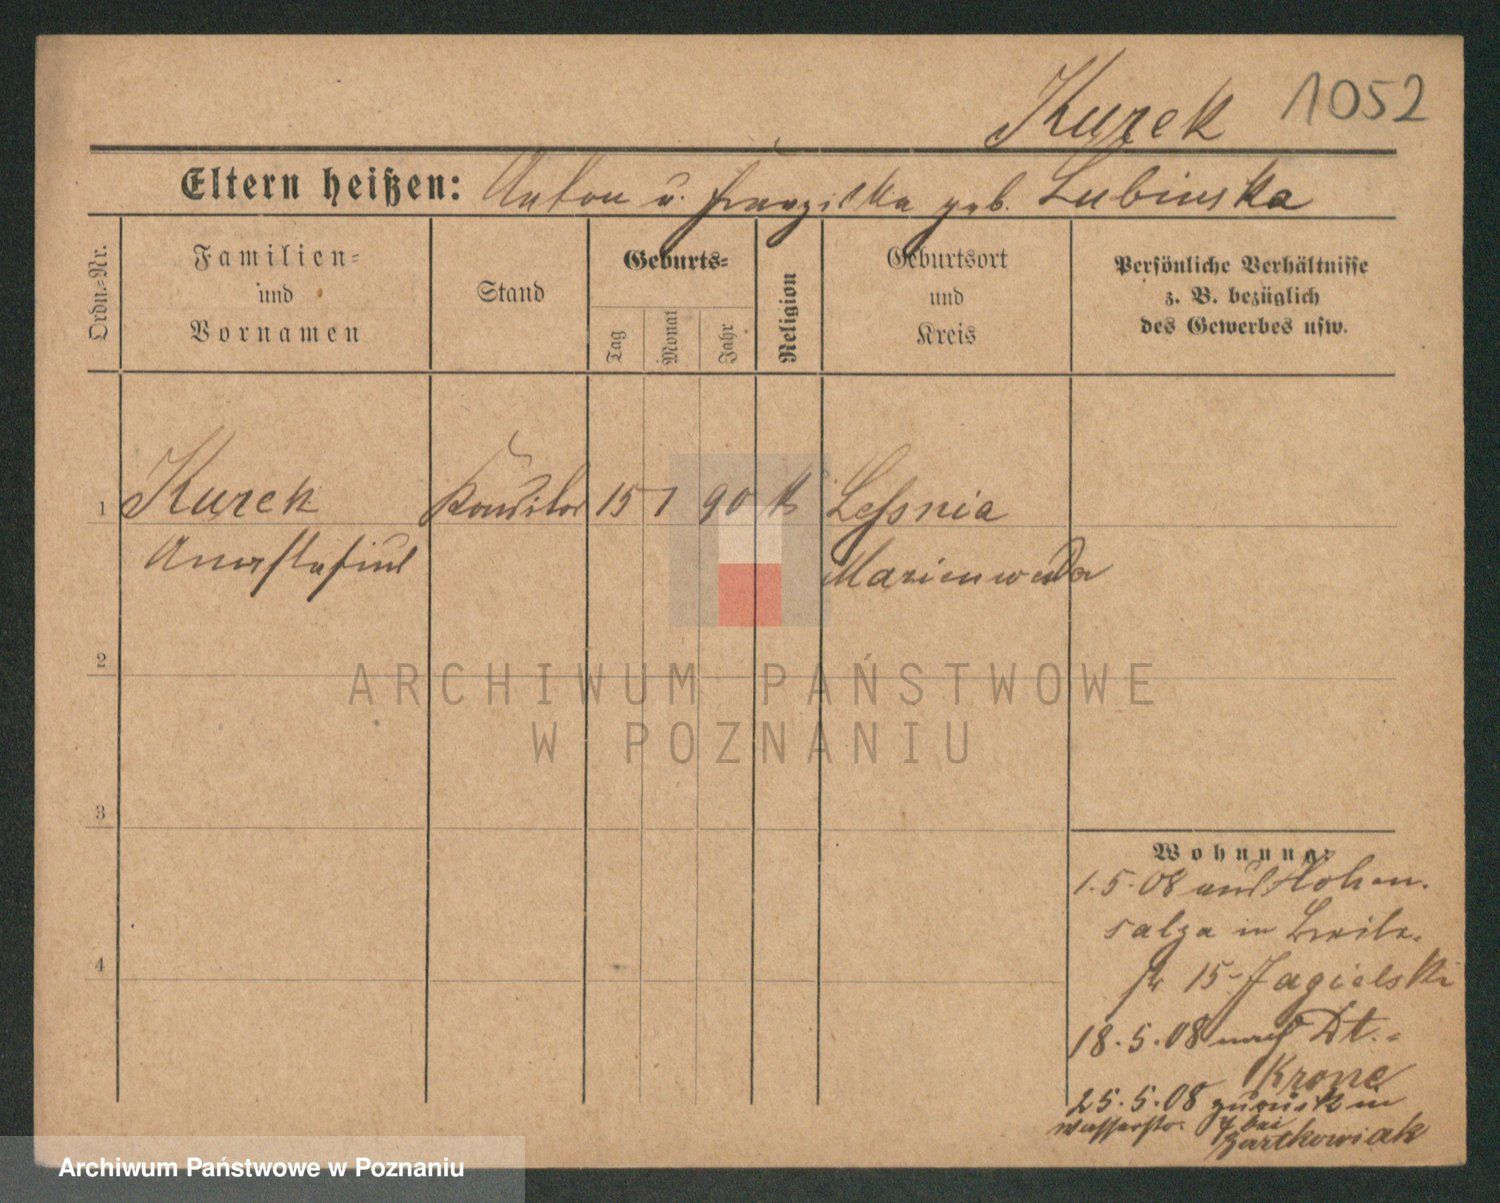 Kurek 1052
Eltern heißen: Anton u. Franziska geb. Lubinska
Ordn.-Nr.
Familien-
und
Vornamen
Stand
Geburts-
Tag
Monat
Jahr
Religion
Geburtsort
und
Kreis
Persönliche Verhältnisse
z. B. bezüglich
des Gewerbes usw.
1 Kurek Konditor 15 1 90 k Lessnia
Anastasius Marienwerder
2
3
4
Wohnung:
1.5.08 aus Hohen-
salza in
15 Jagielski
18.5.08 nach Dt.-
Krone
25.5.08 zurück in
Wasserstr. 7 bei
Bartkowiak
ARCHIWUM PAŃSTWOWE
W POZNANIU
Archiwum Państwowe w Poznaniu